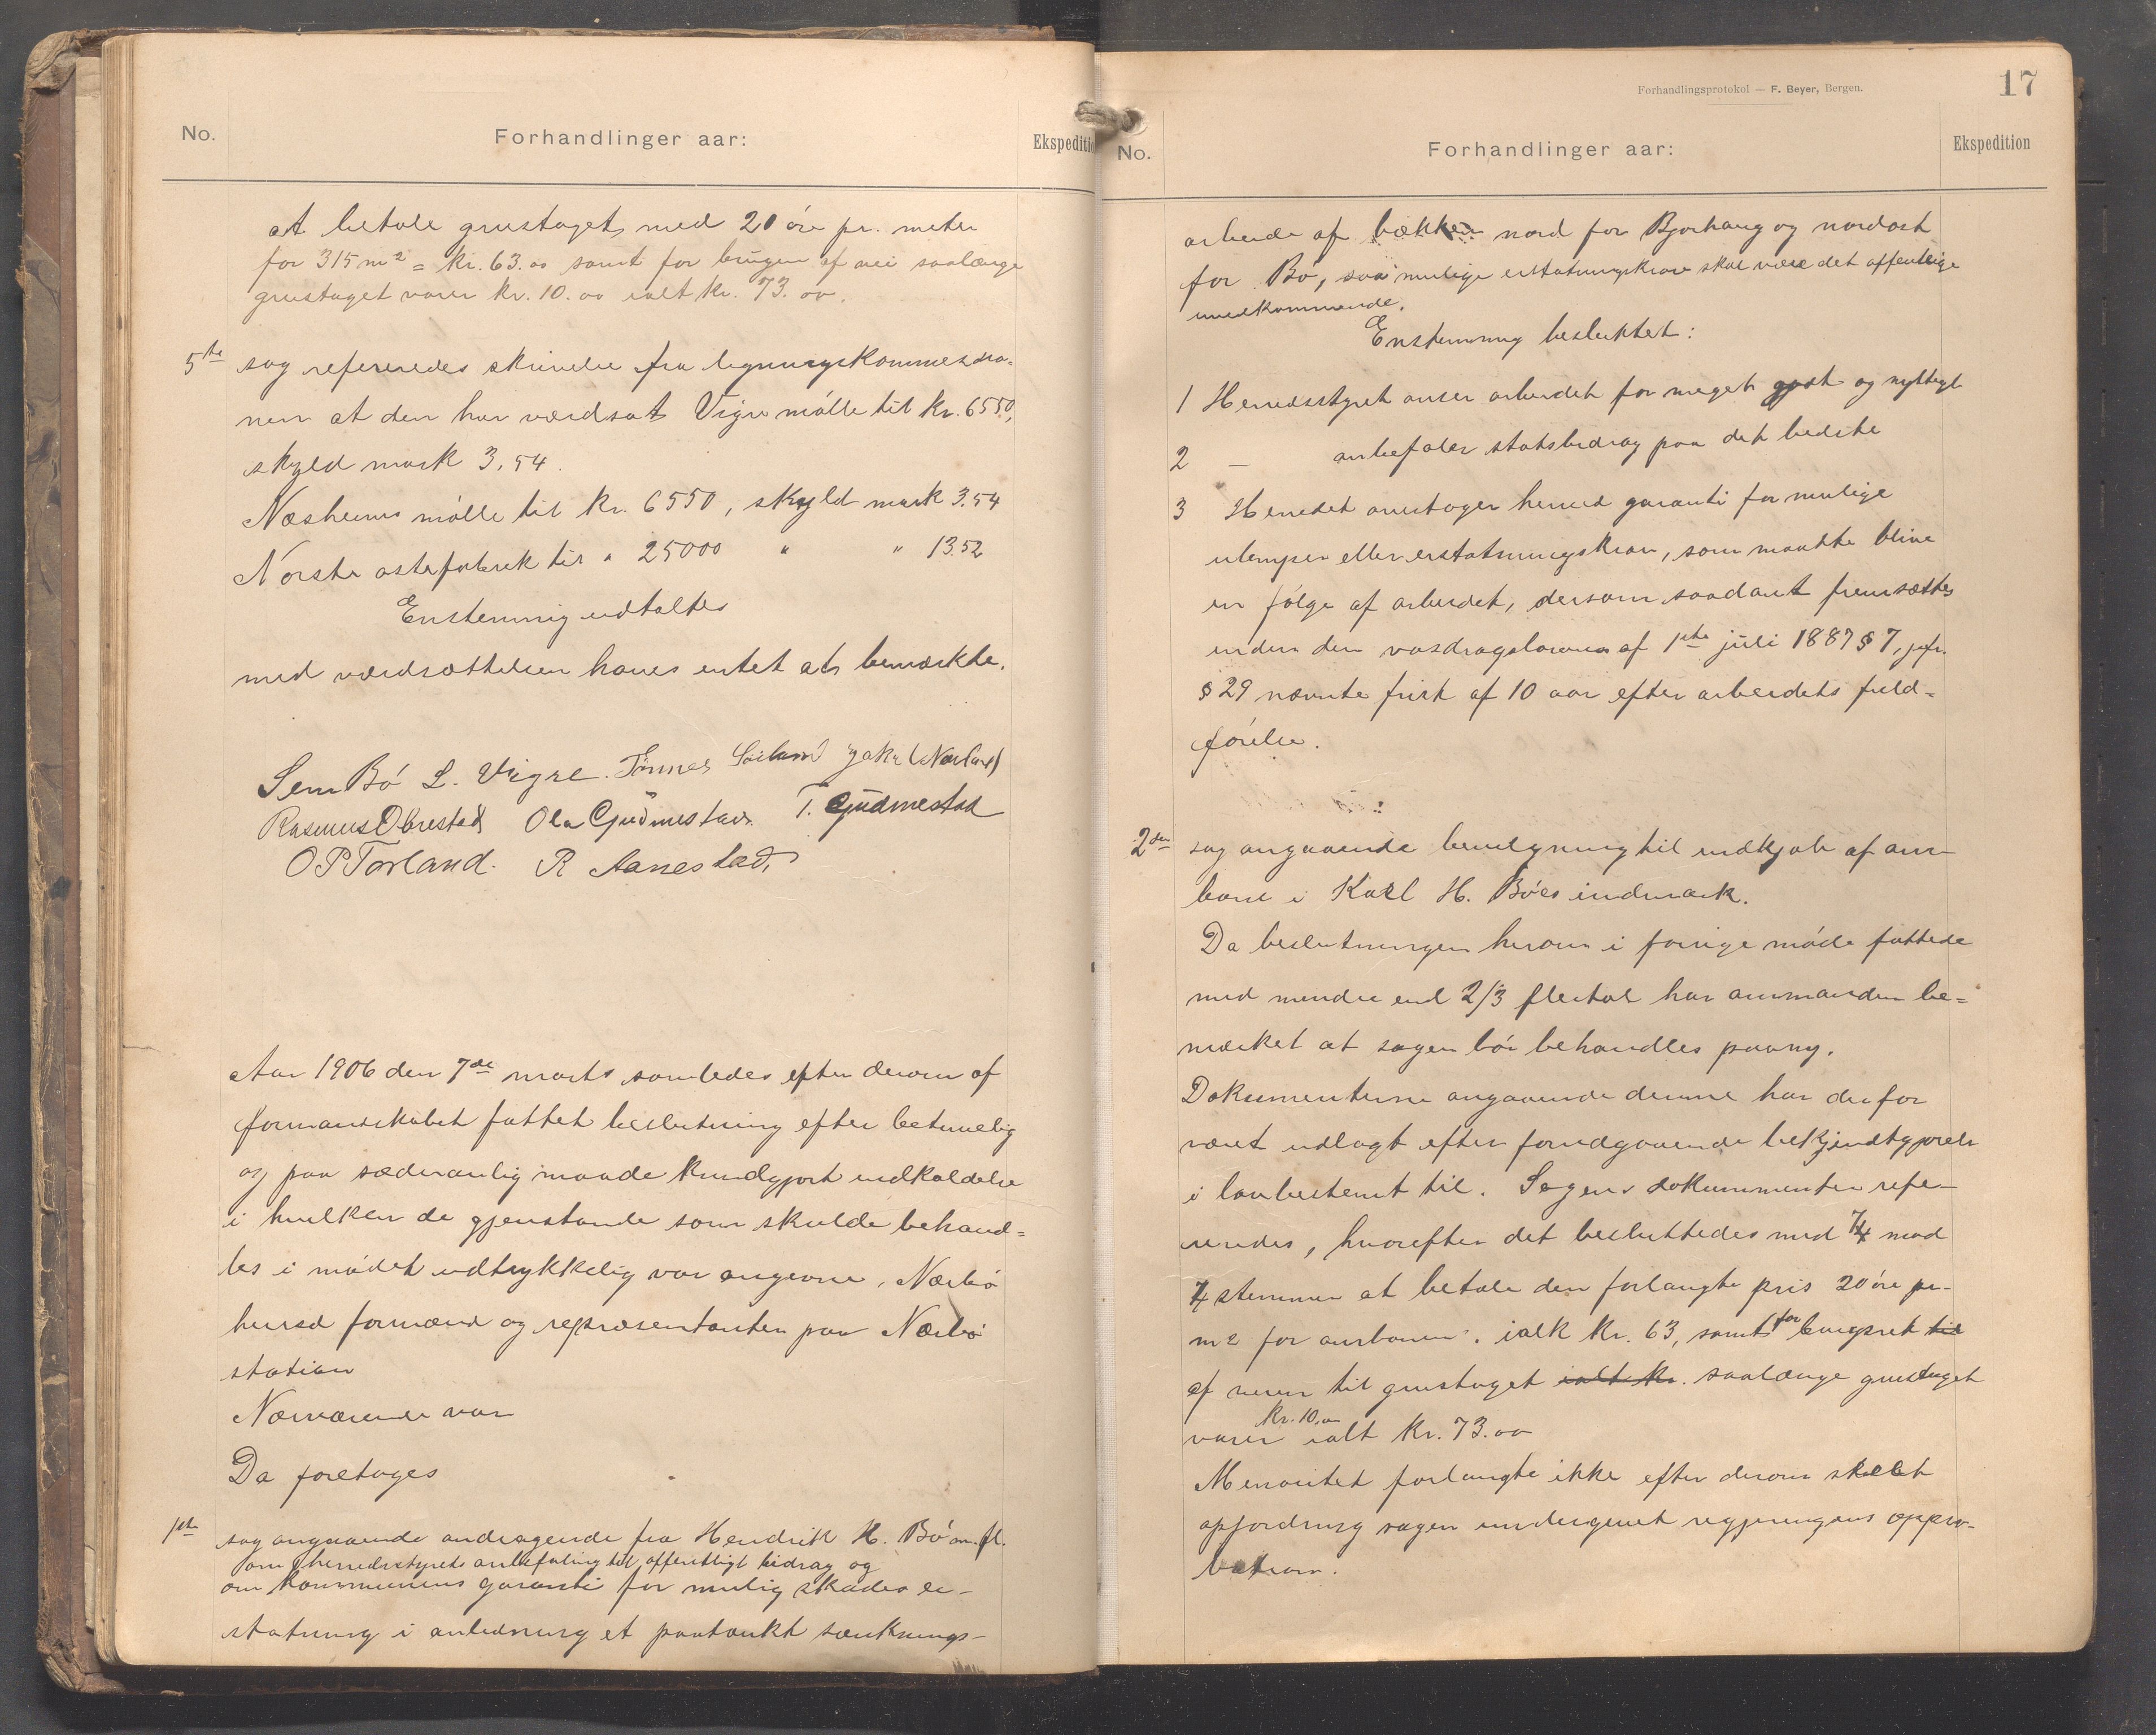 No.
Forhandlinger aar:
Ekspediti
at betale grustaget med 20 øre pr. meter
for 315 m² = kr. 63.00 samt for brugen af vei saalænge
grustaget varer kr. 10.00 ialt kr. 73.00.
5te sag refereredes skrivelse fra ligningskommissio-
nen at den har værdsat Vigre mølle til kr. 6550,
skyld mark 3,54.
Næsheims mølle til kr. 6550, skyld mark 3.54
Norske ostefabrik til " 25000 " " 13.52
Enstemmig udtaltes
med værdsættelsen haves intet at bemærkte.
Sem Bø L. Vigre. Tønnes Søiland Jakob Nærland
Rasmus Obrestad Ola Gudmestad. T. Gudmestad
O P Torland. R Aanestad,
Aar 1906 den 7de marts samledes efter derom af
formandskabet fattet beslutning efter betimelig
og paa sædvanlig maade kundgjort indkaldelse
i hvilken de gjenstande som skulde behand=
les i mødet udtrykkelig var angivne, Nærbø
herred formænd og repræsentanter paa Nærbø
station
Nærværende var
Da foretoges
1ste sag angaaende andragende fra Hendrik H. Bø m.fl.
om herredsstyrets anbefaling til offentligt bidrag og
om kommunens garanti for mulig skades er-
statning i anledning et paatænkt sænknings-
Forhandlingsprotokol — F. Beyer, Bergen.
17
No.
Forhandlinger aar:
Ekspedition
arbeide af bækken nord for Bjorhaug og nordost
for Bø, saa mulige erstatningskrav skal være det offentlige
uvedkommende.
Enstemmig besluttet:
1 Herredsstyret anser arbeidet for meget godt og nyttigt
2 — anbefaler statsbidrag paa det bedste
3 Herredet overtager herved garanti for mulige
ulemper eller erstatningskrav, som maatte blive
en følge af arbeidet, dersom saadant fremsættes
inden den vasdragsloven af 1ste juli 1887 § 7, jfr.
§ 29 nævnte frist af 10 aar efter arbeidets fuld=
førelse.
2den sag angaaende bevilgning til indkjøb af aur-
bane i Karl H. Bøes indmark.
Da beslutningen herom i forrige møde fattede
med mindre end 2/3 flertal har ammanden be=
mærket at sagen bør behandles paany.
Dokumenterne angaaende denne har derfor
været udlagt efter forudgaaende bekjendtgjørelse
i lovbestemt tid. Sagens dokummenter refe-
reredes, hvorefter det besluttedes med 7 mod
4 stemmer at betale den forlangte pris 20 øre pr.
m² for aurbanen, ialt kr. 63, samt for brugsret til
af veien til grustaget ialt kr. saalænge grustaget
kr. 10.00
varer ialt kr. 73.00
Menoritet forlangte ikke efter derom skeet
opfordring sagen undergivet regjeringens appro-
bation.